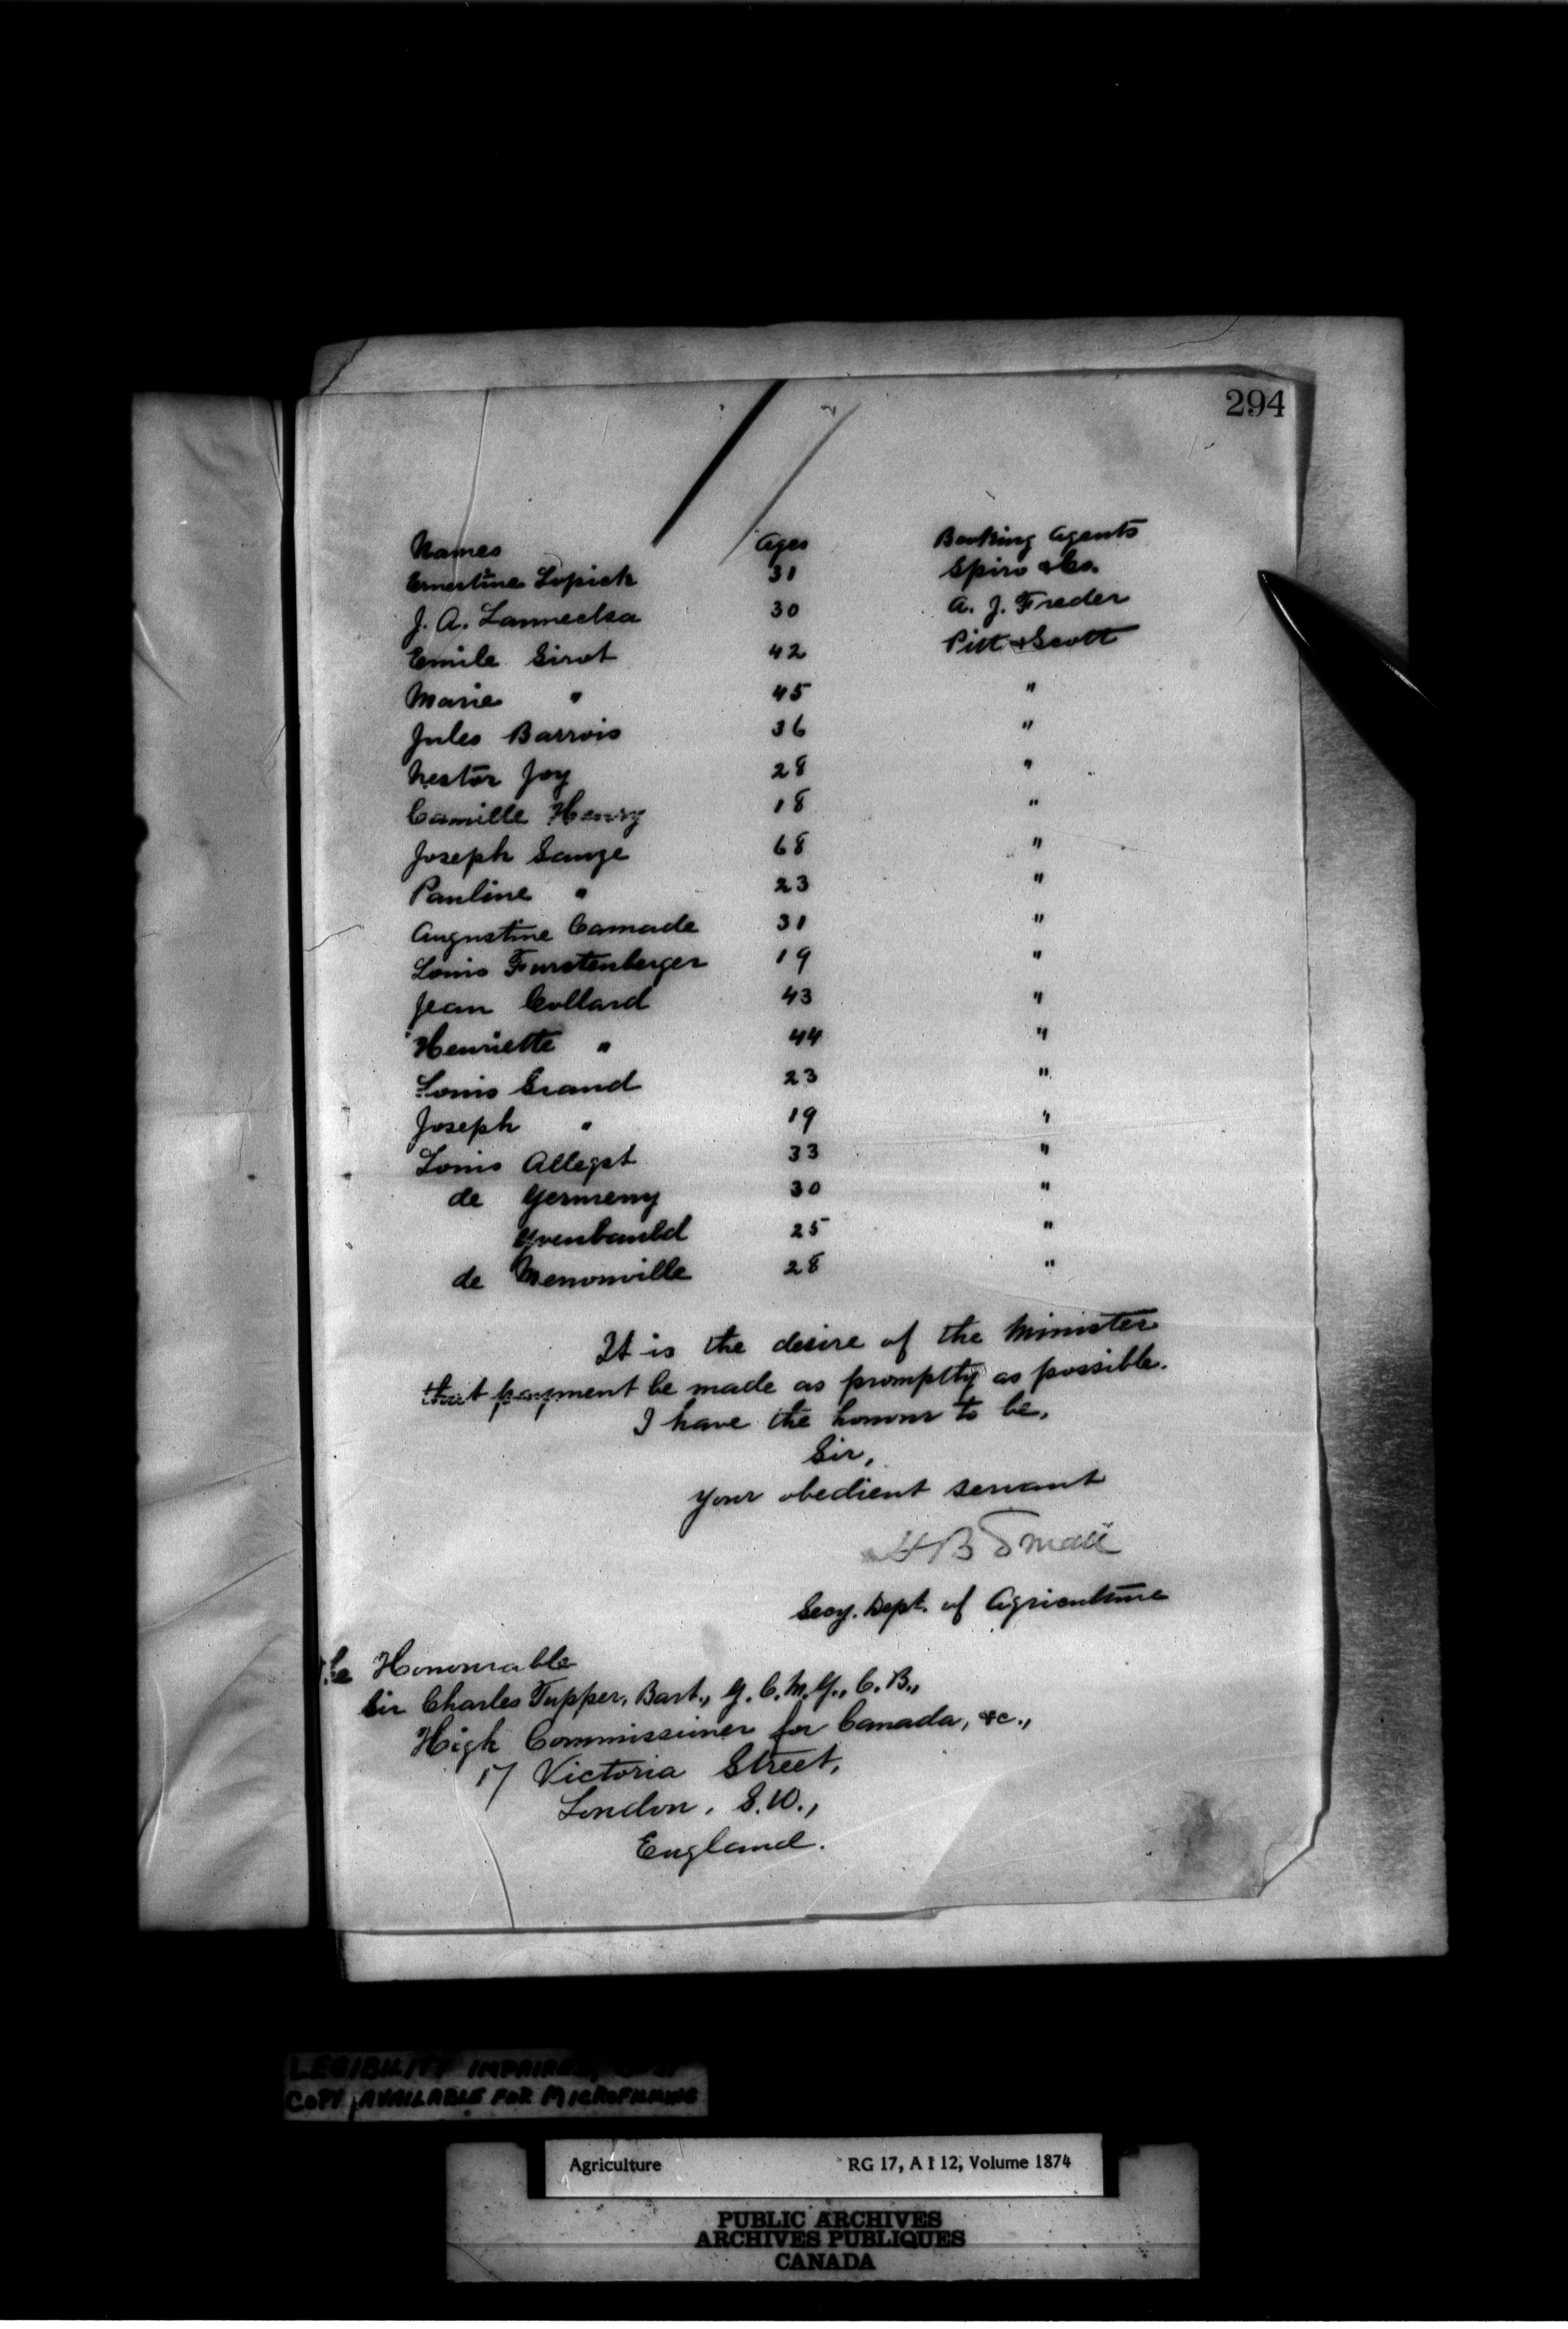 294
Names Ages Booking Agents
Ernestine Lopick 31 Spiro & Co.
J. A. Lannecka 30 A. J. Freder
Emile Girot 42 Pitt & Scott
Marie " 45 "
Jules Barrois 36 "
Nestor Joy 28 "
Camille Henry 18 "
Joseph Gange 68 "
Pauline " 23 "
Augustine Camade 31 "
Louis Furstenberger 19 "
Jean Collard 43 "
Henriette " 44 "
Louis Grand 23 "
Joseph " 19 "
Louis Allegat 33 "
de Germeny 30 "
25 "
de Menonville 28 "
It is the desire of the Minister
that payment be made as promptly as possible.
I have the honour to be,
Sir,
Your obedient servant
H B Small
Secy. Dept. of Agriculture
The Honourable
Sir Charles Tupper, Bart., G.C.M.G., C.B.,
High Commissioner for Canada, &c.,
17 Victoria Street,
London, S.W.,
England.
LEGIBILITY IMPAIRED,
COPY AVAILABLE FOR MICROFILMING
Agriculture RG 17, A I 12, Volume 1874
PUBLIC ARCHIVES
ARCHIVES PUBLIQUES
CANADA